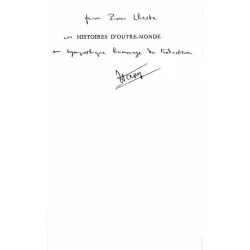 pour Pierre
ces HISTOIRES D'OUTRE-MONDE
en sympathique hommage du traducteur